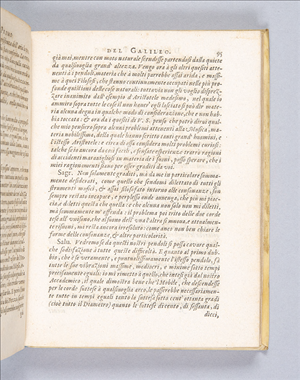 DEL GALILEO. 95
già mai, mentre con moto naturale scendesse partendosi dalla quiete
da qualsivoglia grand' altezza. Vengo ora à gli altri quesiti attenenti
à i pendoli, materia che à molti parrebbe assai arida, e massime
à quei Filosofi, che stanno continuamente occupati nelle più profonde
quistioni delle cose naturali: tuttavia non gli voglio
dall' esempio d' Aristotele medesimo, nel quale io
ammiro sopra tutte le cose il non haver egli lasciato si può dir materia
alcuna degna in qualche modo di considerazione, che e' non habbia
toccata: Et ora da i quesiti di V. S. penso che potrò dirvi qualche
mio pensiero sopra alcuni problemi attenenti alla Musica, materia
nobilissima, della quale hanno scritto tanti grand' huomini, e
l' istesso Aristotele: e circa di essa considera molti problemi curiosi:
di accidenti maravigliosi in materia de i suoni, posso sperare, che i
miei ragionamenti siano per esser graditi da voi.
Sagr. Non solamente graditi, mà da me in particolare sommamente
desiderati, come quello che sendomi dilettato di tutti gli
strumenti musici, & assai filosofato intorno alle consonanze, son
sempre restato incapace, e perplesso onde avvenga, che più mi piaccia,
e diletti questa che quella: e che alcuna non solo non mi diletti,
mà sommamente m' offenda: il problema poi trito delle due corde
tese all' unisono, che al suono dell' una l' altra si muova, e attualmente
risuoni, mi resta ancora irresoluto: come anco non ben chiare le
forme delle consonanze, & altre particolarità.
Salu. Vedremo se da questi nostri pendoli si possa cavare qualche
sodisfazione à tutte queste difficoltà. E quanto al primo dubbio,
che è se veramente, e puntualissimamente l' istesso pendolo, fà
tutte le sue vibrazioni massime, mediocri, e minime sotto tempi
precisamente eguali: io mi rimetto à quello, che intesi già dal nostro
Accademico, il quale dimostra bene che l' Mobile, che discendesse
per le corde suttese à qualsivoglia arco, le passerebbe necessariamente
tutte in tempi eguali tanto la suttesa sotto cent' ottanta gradi
(cioè tutto il Diametro) quanto le suttese di cento, di sessanta, di
dieci,